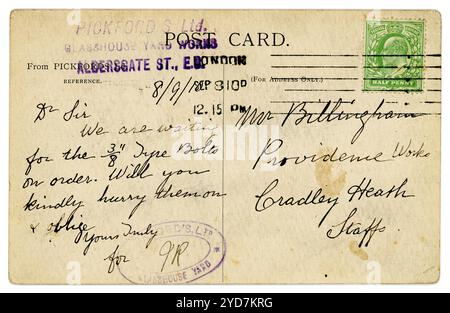 PICKFORD'S Ltd.
GLASSHOUSE YARD WORKS
ALDERSGATE ST., E.C.
POST CARD.
From PICKFORDS
REFERENCE.
(For Address Only.)
LONDON
SEP 8 10
12.15 PM
HALF PENNY
8/9/10
Dr Sir
We are waiting
for the 3/8" Tyre Bolts
on order. Will you
kindly hurry them on
& oblige
Yours truly
for
Mr Billingham
Providence Works
Cradley Heath
Staffs
GLASSHOUSE YARD
alamy
Image ID: 2YD7KRG
www.alamy.com